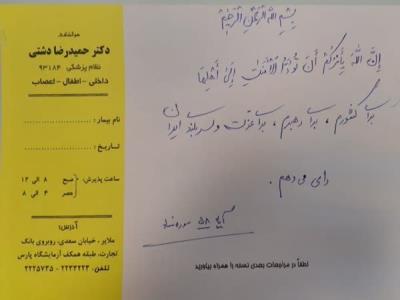 هوالشافی
دکتر حمیدرضا دشتی
نظام پزشکی ۹۳۱۸۴
داخلی - اطفال - اعصاب
نام بیمار:
تاریخ:
ساعت پذیرش: صبح ۸ الی ۱۲
عصر ۴ الی ۸
آدرس:
ملایر، خیابان سعدی، روبروی بانک
تجارت، طبقه همکف آزمایشگاه پارس
تلفن: ۲۲۳۳۲۲۳ - ۲۲۲۵۷۳۵
بسم الله الرحمن الرحیم
إن الله یأمرکم أن تؤدوا الأمانات إلی أهلها
برای کشورم، برای رهبرم، برای عزت و سربلندی ایران
رای می دهم.
آیه ۵۸ سوره نساء
لطفاً در مراجعات بعدی نسخه را همراه بیاورید